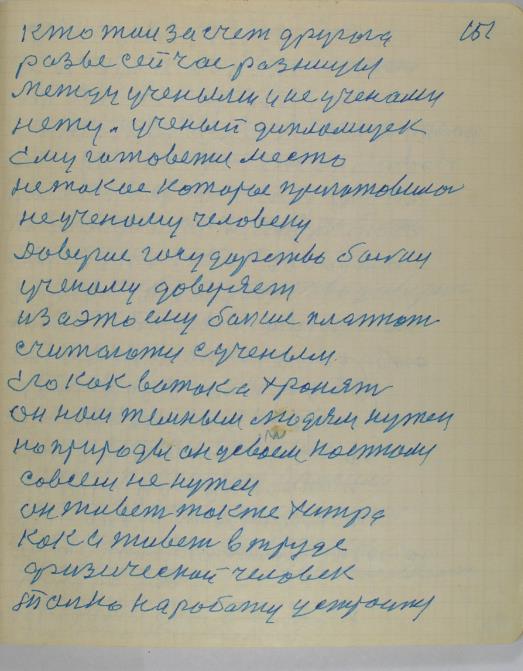 151
кто тои за счет другога
разве сейчас разницы
между учеными и не учеными
нету. ученый дипломщек
Ему готовеж место
не такое которое приготовил
не ученому человеку
доверие государство болии
ученому доверяет
и за это ему больше платют
считаютж с ученым
Его как воток и хронят
он нам темным людям нужен
но природы он своем поэтому
совсем не нужен
он живет также хитра
как и живет в труде
физической человек
только на работу устроит